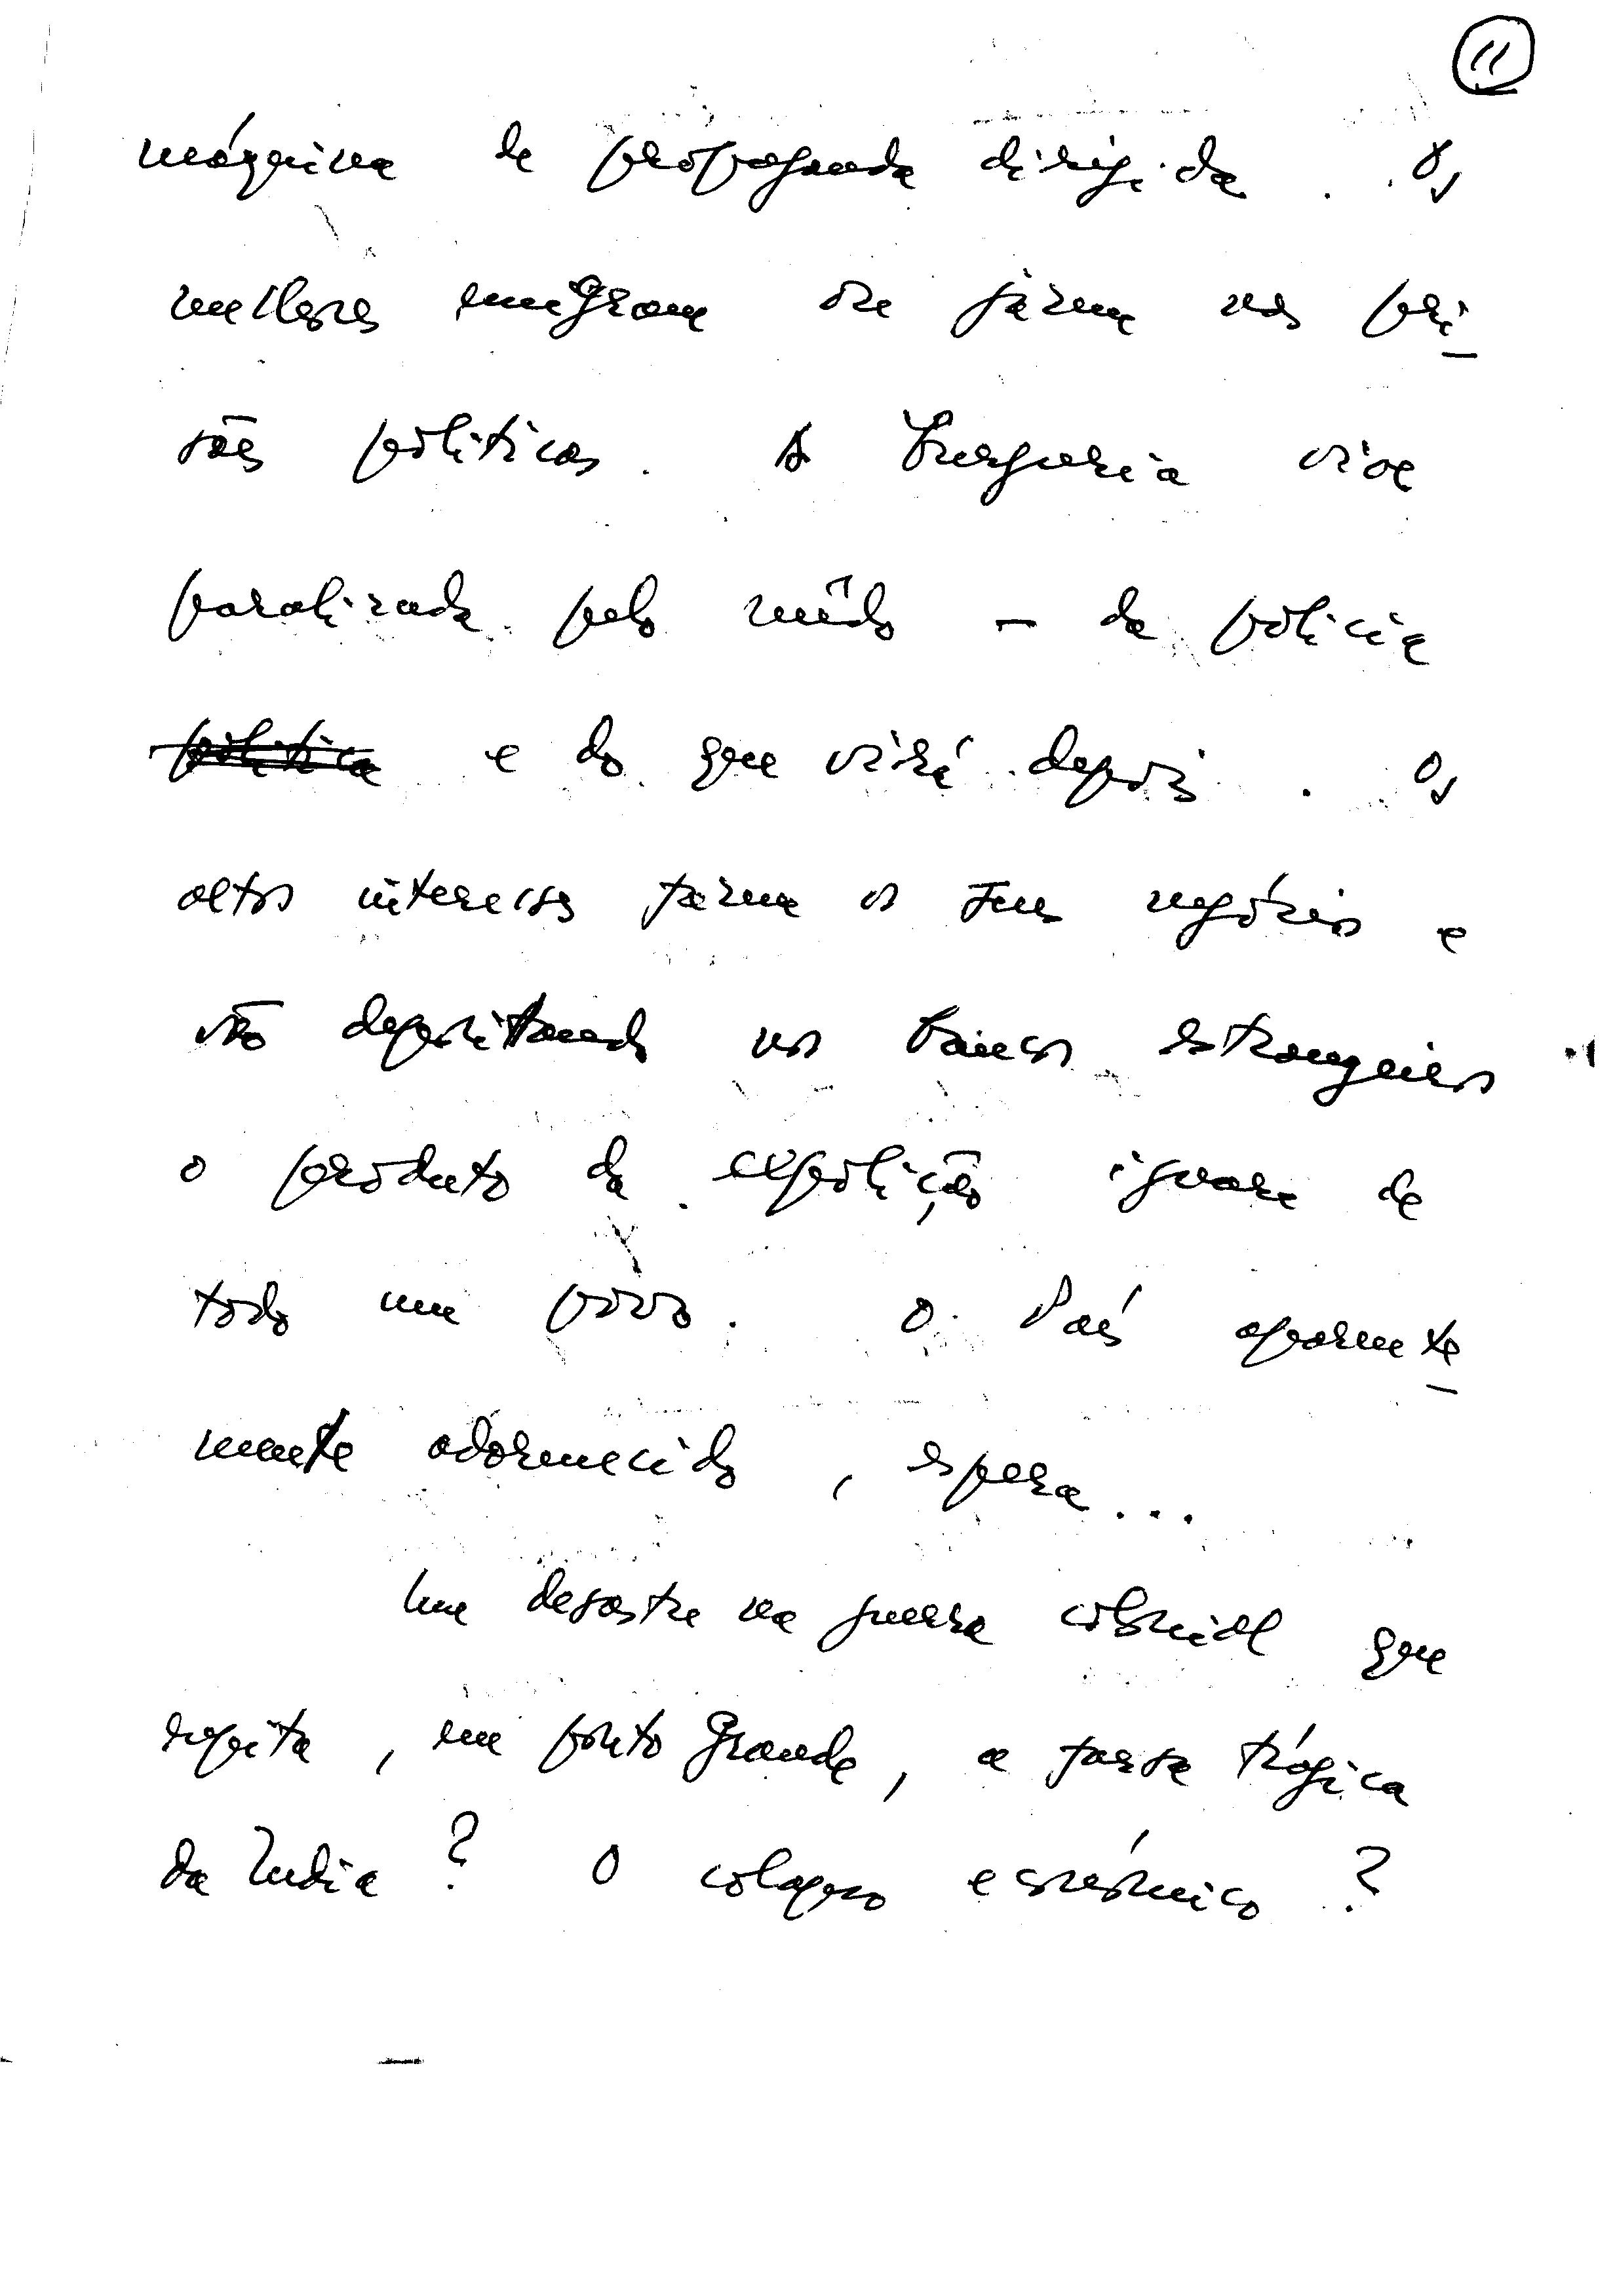 11
máquina de propaganda dirigida. Os
melhores emigram ou jazem nas pri-
sões políticas. A burguesia vive
paralizada pelo mêdo - da polícia
política e do que virá depois. Os
altos interesses fazem os seus negócios e
vão depositando nos bancos estrangeiros
o produto da expolição ignara de
todo um povo. O País aparente-
mente adormecido, espera...
Um desastre na guerra colonial que
repita, em ponto grande, a farsa trágica
da Índia? O colapso económico?